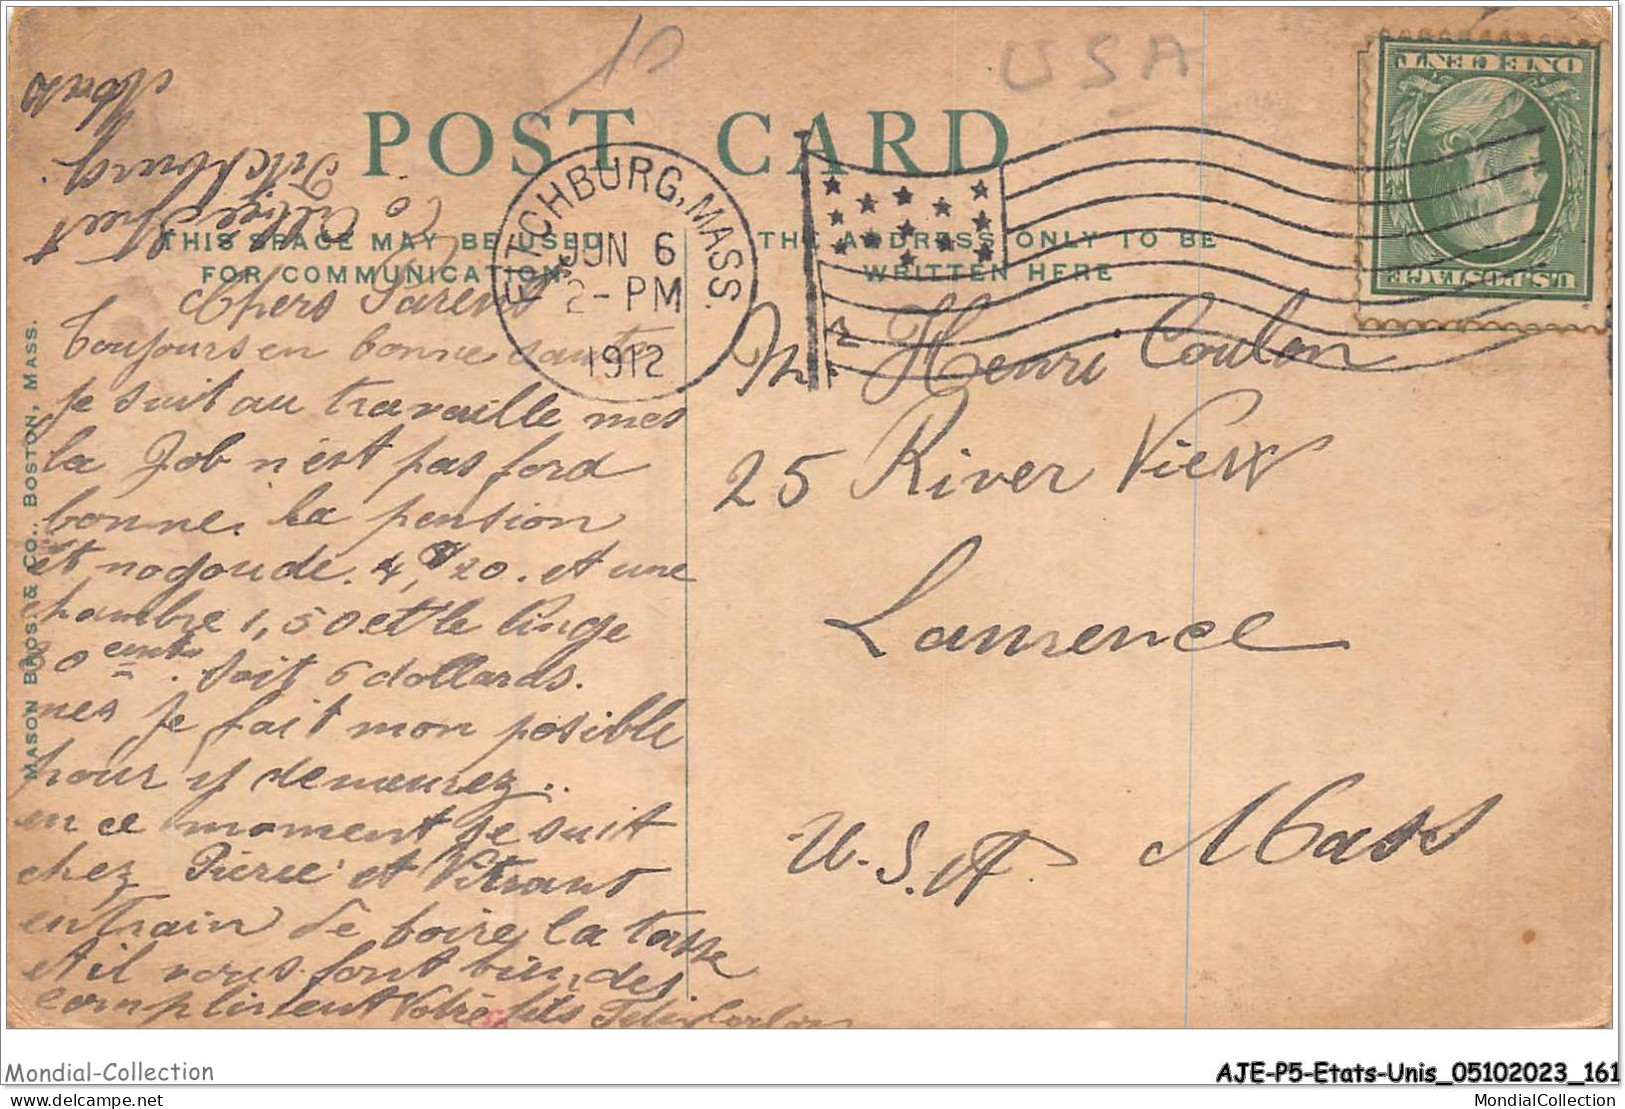 10
USA
ONE CENT
U.S. POSTAGE
POST CARD
FITCHBURG, MASS.
JUN 6
2-PM
1912
THIS SPACE MAY BE USED
FOR COMMUNICATION
THE ADDRESS ONLY TO BE
WRITTEN HERE
MASON BROS. & CO., BOSTON, MASS.
Street
Fitchburg
Mass
Chers Parents
Toujours en bonne santé
je suit au travaille mes
la Job n'est pas ford
bonne. La pension
et nogoude. 4,$20. et une
chambre 1,50 et le linge
30 cents. soit 6 dollards.
mes je fait mon posible
pour y demeurez..
en ce moment je suit
chez Pierre et
en train de boire la tasse
et il vous font bien des
compliment Votre fils
M. Henri Coulon
25 River View
Lawrence
U.S.A. Mass
Mondial-Collection
mondialcollection.net
AJE-P5-Etats-Unis_05102023_161
MondialCollection.com